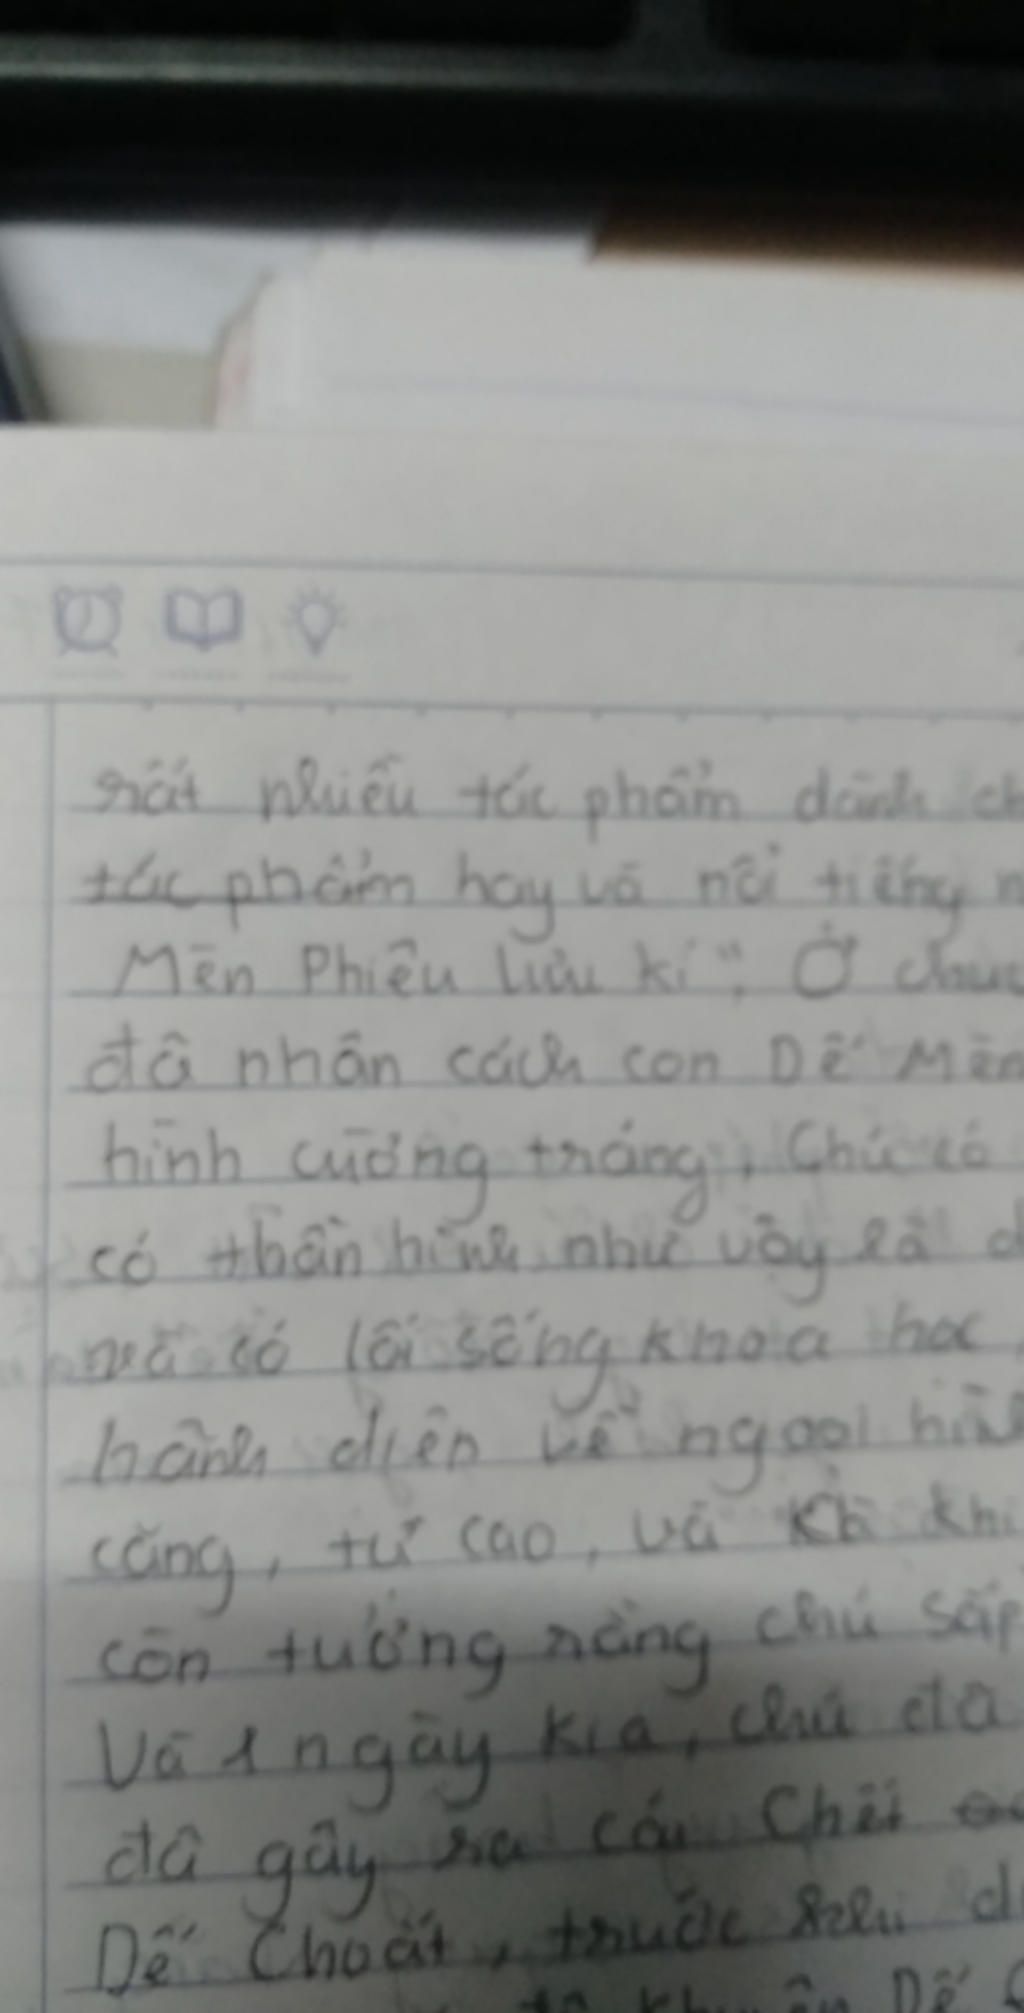 rất nhiều tác phẩm dành ch
tác phẩm hay và nổi tiếng n
Mèn Phiêu lưu kí". Ở chươ
đã nhân cách con Dế Mèn
hình cường tráng, Chú có
có thân hình như vậy là d
mà có lối sống khoa học,
hãnh diện về ngoại hìn
căng, tự cao, và khi
còn tưởng rằng chú sắp
Và 1 ngày kia, chú đã
đã gây ra cái Chết
Dế Choắt, trước khi d
Dế